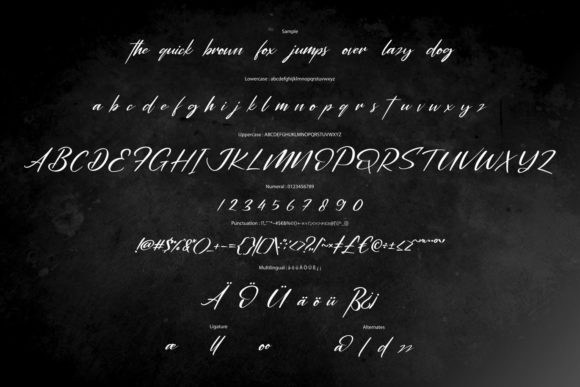 Sample
the quick brown fox jumps over lazy dog
Lowercase : abcdefghijklmnopqrstuvwxyz
a b c d e f g h i j k l m n o p q r s t u v w x y z
Uppercase : ABCDEFGHIJKLMNOPQRSTUVWXYZ
ABCDEFGHIJKLMNOPQRSTUVWXYZ
Numeral : 0123456789
1 2 3 4 5 6 7 8 9 0
Punctuation :
!@#$%&()_+-={}[]
Multilingual : ä ö ü Ä Ö Ü ß ¿ ¡
Ä Ö Ü ä ö ü ß¿¡
Ligature Alternates
æ oo a l d zz